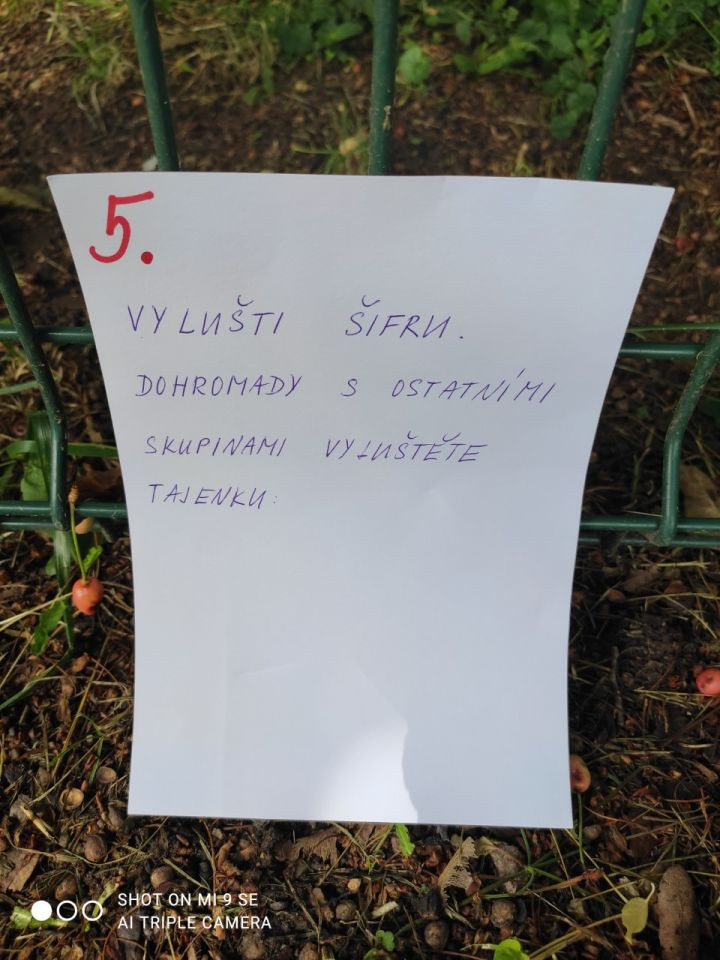 5.
VYLUŠTI ŠIFRU.
DOHROMADY S OSTATNÍMI
SKUPINAMI VYLUŠTĚTE
TAJENKU:
SHOT ON MI 9 SE
AI TRIPLE CAMERA